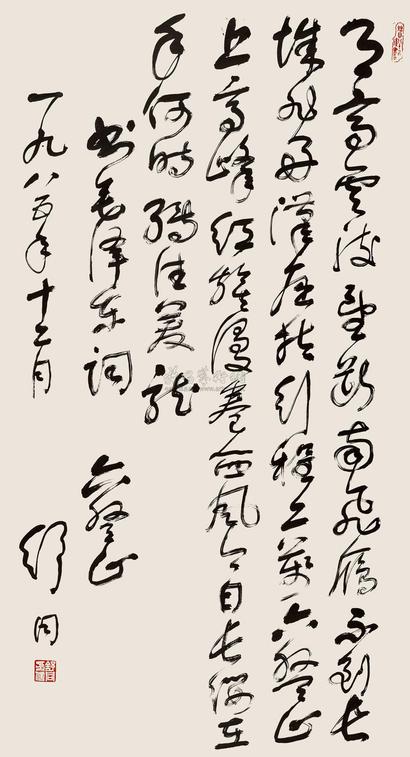 天高雲淡望断南飛雁不到长
城非好漢屈指行程二萬六盘山
上高峰红旗漫卷西风今日长缨在
手何时缚住苍龙
书毛泽东词 六盘山
一九八五年十二月 舒同